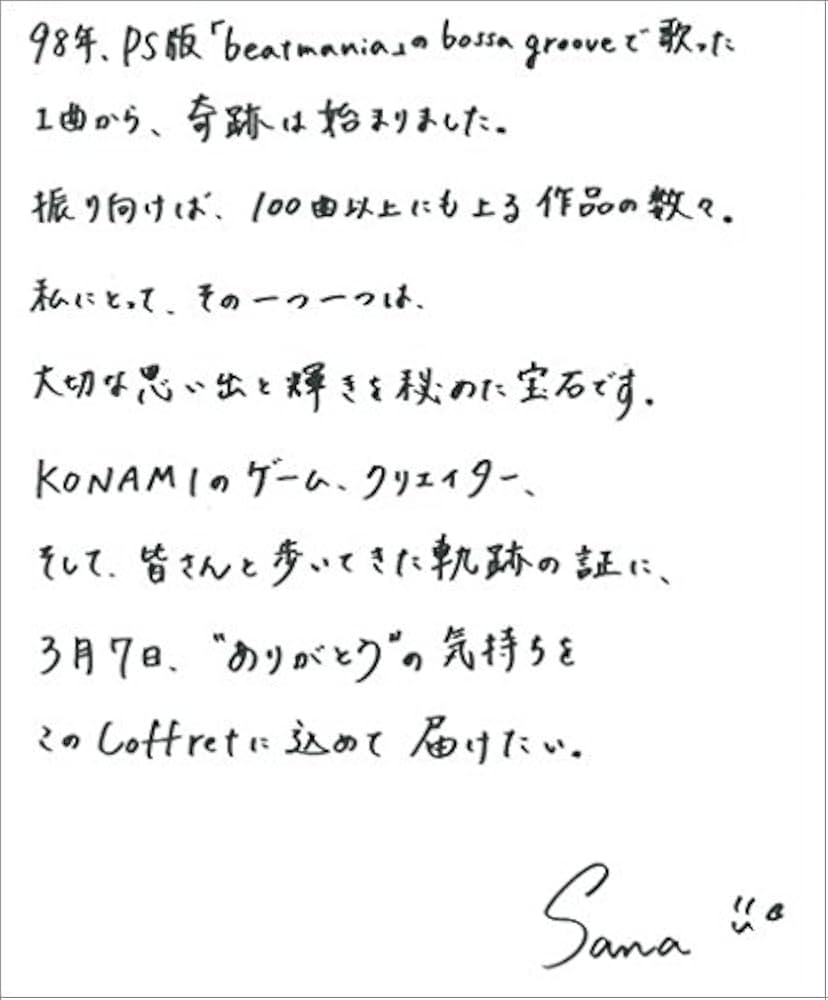 98年、PS版「beatmania」のbossa grooveで歌った
1曲から、奇跡は始まりました。
振り向けば、100曲以上にも上る作品の数々。
私にとって、その一つ一つは、
大切な思い出と輝きを秘めた宝石です。
KONAMIのゲーム、クリエイター、
そして、皆さんと歩いてきた軌跡の証に、
3月7日、“ありがとう”の気持ちを
このCoffretに込めて届けたい。
Sana